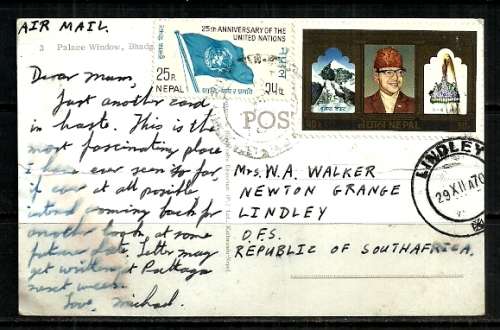 AIR MAIL.
3 Palace Window, Bhadg
25th ANNIVERSARY OF THE
UNITED NATIONS
25P.
NEPAL
नेपाल
POS
LINDLEY
29 XII A70
Dear Mum,
Just another card
in haste. This is the
most fascinating place
I have ever seen so far,
if ever at all possible
intend coming back for
another look at some
future date. Letter may
get written at Pattaya
next week.
Love, Michael.
Mrs. W.A. WALKER
NEWTON GRANGE
LINDLEY
O.F.S.
REPUBLIC OF SOUTH AFRICA.